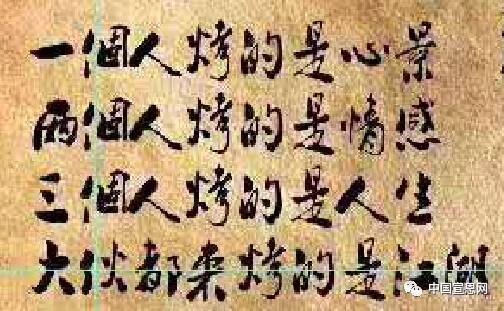 一個人烤的是心景
兩個人烤的是情感
三個人烤的是人生
大伙都來烤的是江湖
中国宣恩网